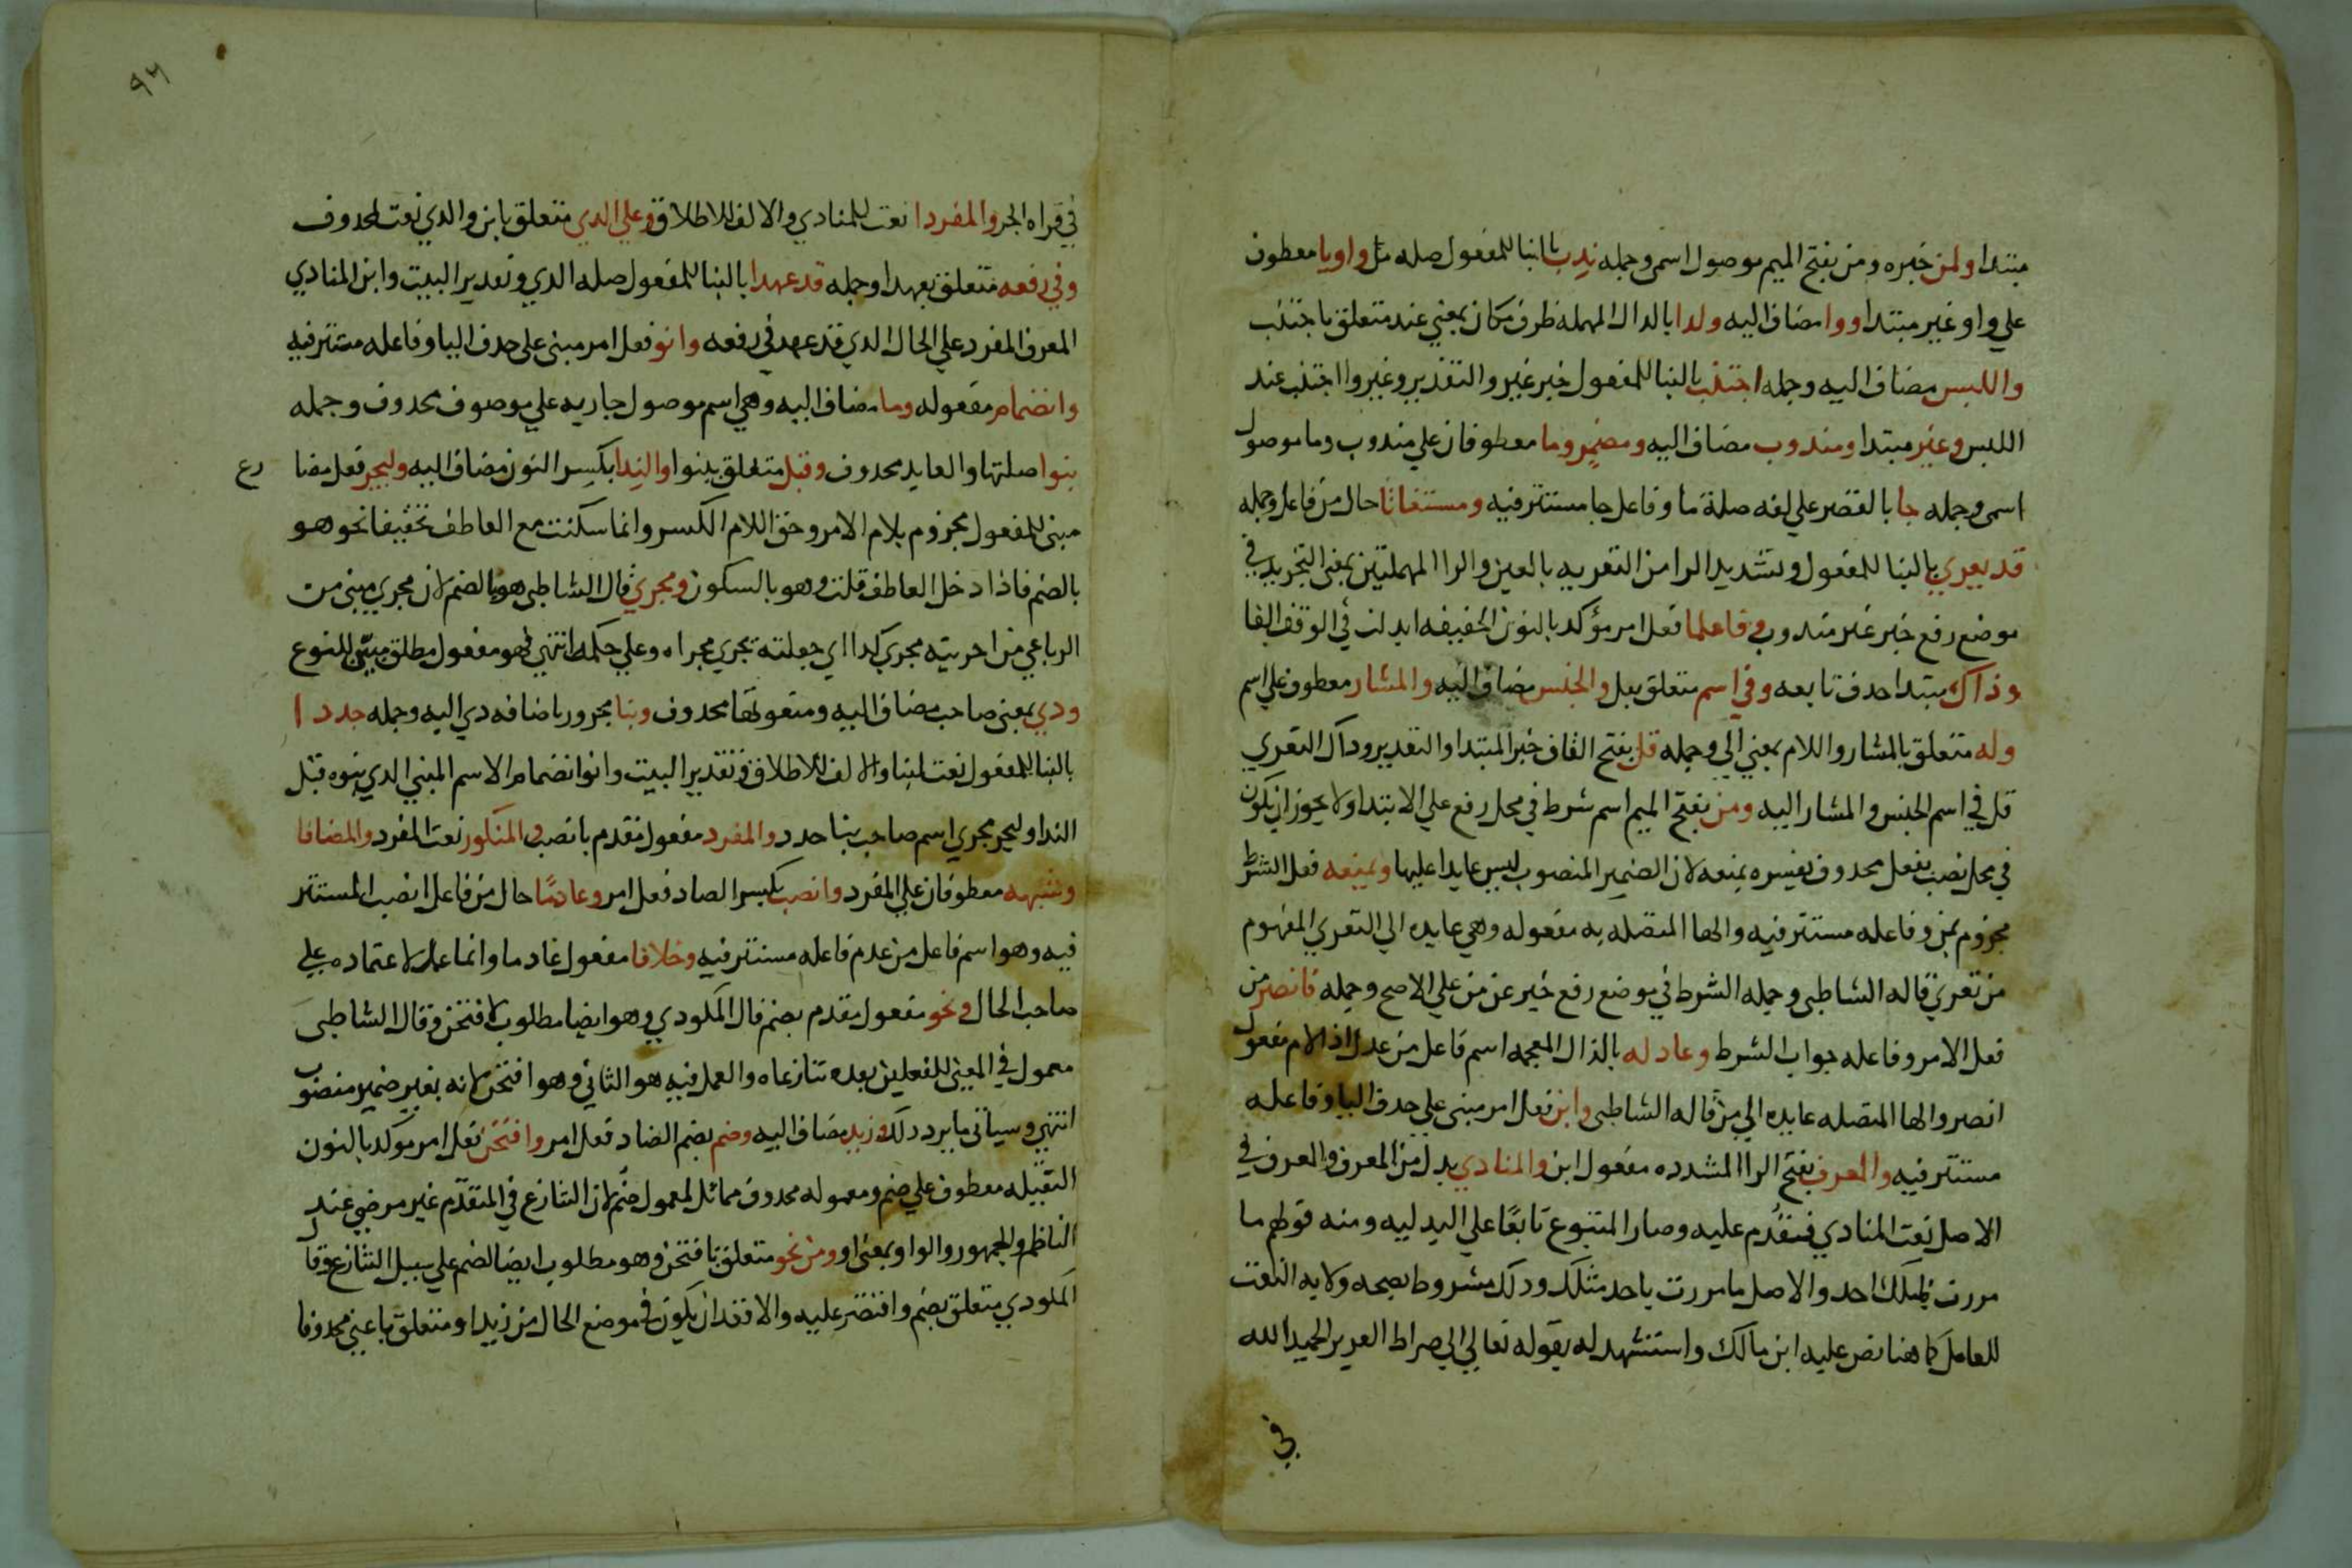 مبتدا ولمن خبره ومن بفتح الميم موصول اسمي وجمله ندب بالبنا للمفعول صله من واويا معطوف
علي واو وغير مبتدا ووا مضاف اليه ولدا بالدال المهمله ظرف مكان بمعني عند متعلق باجتنب
واللبس مضاف اليه وجمله اجتنب بالبنا للمفعول خبر غير والتقدير وغير وا اجتنب عند
اللبس وغير مبتدا ومندوب مضاف اليه ومضمر وما معطوفان علي مندوب وما موصول
اسمي وجمله جا بالقصر علي لغه صلة ما وفاعل جا مستتر فيه ومستغاثا حال من فاعل وجمله
قد يعري بالبنا للمفعول وتشديد الرا من التعريه بالعين والرا المهملتين بمعني التجريد في
موضع رفع خبر غير مندوب وفاعلما فعل امر مؤكد بالنون الخفيفه ابدلت في الوقف الفا
وذاك مبتدا حذف تابعه وفي اسم متعلق بقل والجنس مضاف اليه والمشار معطوف علي اسم
وله متعلق بالمشار واللام بمعني الي وجمله قل بفتح القاف خبر المبتدا والتقدير وداك التعري
قل في اسم الجنس والمشار اليه ومن بفتح الميم اسم شرط في محل رفع علي الابتدا ولا يجوز ان يكون
في محل نصب بفعل محدوف يفسره يمنعه لان الضمير المنصوب ليس عايدا عليها ويمنعه فعل الشرط
مجزوم بمن وفاعله مستتر فيه والها المتصله به مفعوله وهي عايده الي التعري المفهوم
من تعري قاله الشاطبي وجمله الشرط في موضع رفع خبر عن من علي الاصح وجمله فانصر من
فعل الامر وفاعله جواب الشرط وعادله بالذال المعجمه اسم فاعل من عدل اذا لام مفعول
انصر والها المتصله عايده الي من قاله الشاطبي وابن فعل امر مبني علي حدف اليا وفاعله
مستتر فيه والمعرف بفتح الرا المشدده مفعول ابن والمنادي بدل من المعرف والمعرف في
الاصل نعت المنادي فتقدم عليه وصار المتبوع تابعا علي البدليه ومنه قولهم ما
مررت بمثلك احد والاصل ما مررت باحد مثلك ودلك مشروط بصحه ولايه النعت
للعامل كما هنا نص عليه ابن مالك واستشهد له بقوله تعالي الي صراط العزيز الحميد الله
في
٩٦
في قراه الجر والمفردا نعت للمنادي والالف للاطلاق وعلي الدي متعلق بابن والدي نعت لمحدوف
وفي رفعه متعلق بعهدا وجمله قد عهدا بالبنا للمفعول صله الدي وتقدير البيت وابن المنادي
المعرف المفرد علي الحال الدي قد عهد في رفعه وانو فعل امر مبني علي حدف اليا وفاعله مستتر فيه
وانضمام مفعوله وما مضاف اليه وهي اسم موصول جاريه علي موصوف محدوف وجمله
بنوا صلتها والعايد محدوف وقبل متعلق ببنوا والندا بكسر النون مضاف اليه وليجر فعل مضا رع
مبني للمفعول مجزوم بلام الامر وحق اللام الكسر وانما سكنت مع العاطف تخفيفا نحو هو
بالضم فاذا دخل العاطف قلت وهو بالسكون ومجري قال الشاطبي هو بالضم لان مجري مبني من
الرباعي من اجريته مجري كدا اي جعلته تجري مجراه وعلي حكمه انتهي فهو مفعول مطلق مبين للنوع
ودي بمعني صاحب مضاف اليه ومنعوتها محدوف وبنا مجرور باضافه دي اليه وجمله جددا
بالبنا للمفعول نعت لبنا والالف للاطلاق وتقدير البيت وانوا نضمام الاسم المبني الدي بنوه قبل
الندا وليجر مجري اسم صاحب بنا جدد والمفرد مفعول مقدم بانصب والمنكور نعت المفرد والمضافا
وشبهه معطوفان علي المفرد وانصب بكسر الصاد فعل امر وعادما حال من فاعل انصب المستتر
فيه وهو اسم فاعل من عدم فاعله مستتر فيه وخلافا مفعول عادما وانما عمل لاعتماده علي
صاحب الحال ونحو مفعول مقدم بضم قال المكودي وهو ايضا مطلوب لافتحن وقال الشاطبي
معمول في المعني للفعلين بعده تنازعاه والعمل فيه هو الثاني وهو افتحن لانه بغير ضمير منصوب
انتهي وسياتي ما يرد دلك وزيد مضاف اليه وضم بضم الضاد فعل امر وافتحن فعل امر موكد بالنون
الثقيله معطوف علي ضم ومعموله محدوف مماثل لمعمول ضم لان التنازع في المتقدم غير مرضي عند
الناظم والجمهور والواو بمعني او ومن نحو متعلق بافتحن وهو مطلوب ايضا لضم علي سبيل التنازع وقال
المكودي متعلق بضم واقتصر عليه والا قعد ان يكون في موضع الحال من زيد او متعلق باعني محدوفا